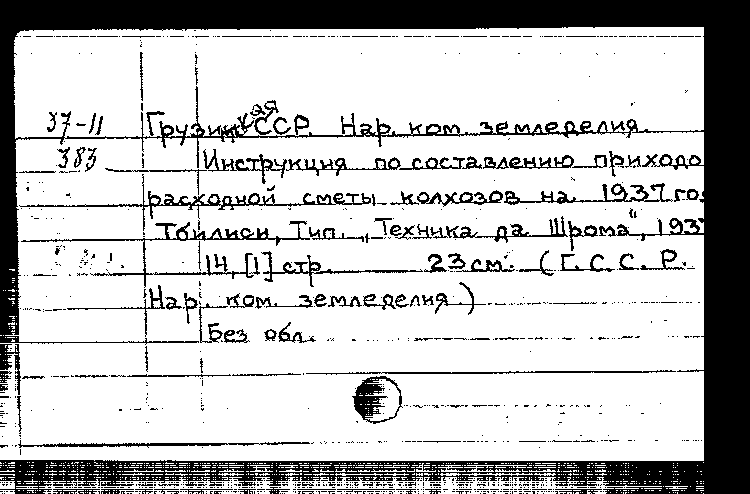 37-11 Грузинская ССР. Нар. ком. земледелия.
383 Инструкция по составлению приходо
расходной сметы колхозов на 1937 год
Тбилиси, Тип. „Техника да Шрома“, 1937
14, [1] стр. 23 см. (Г. С. С. Р.
Нар. ком. земледелия.)
Без обл.